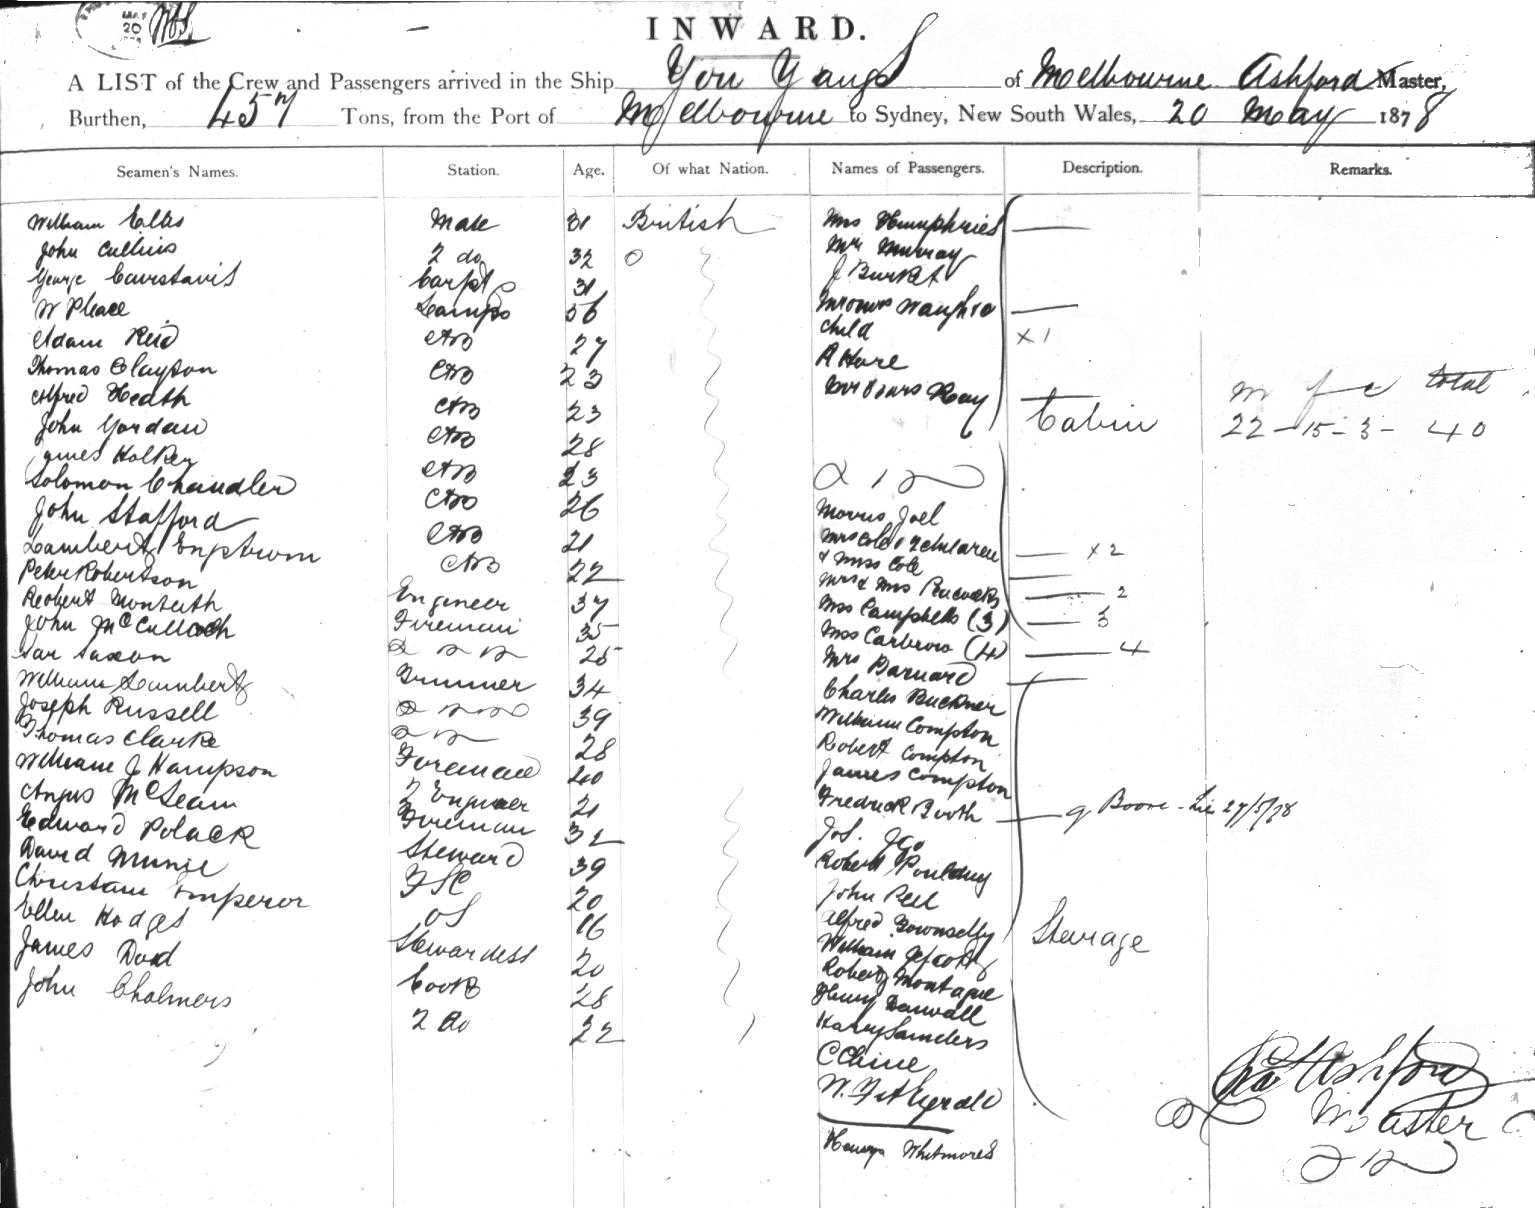 MAY
20
INWARD.
A LIST of the Crew and Passengers arrived in the Ship You Yangs of Melbourne Ashford Master,
Burthen, 457 Tons, from the Port of Melbourne to Sydney, New South Wales, 20 May 1878
Seamen's Names. Station. Age. Of what Nation. Names of Passengers. Description. Remarks.
William Ellis Mate 31 British
John Cullins 2 do 32
George Carpt 31
W Pleace Lamps 56
Adam Reid AB 27
Thomas Clayton AB 23
Alfred Heath AB 23
John Jordan AB 28
James Holkey AB 23
Solomon Chandler AB 26
John Stafford AB 21
Lambert Engstrom AB 22
Peter Robertson Engineer 37
Robert Monteith Fireman 35
John McCulloch 25
Saxon Trimmer 34
William Lambert 39
Joseph Russell 28
Thomas Clarke Foreman 40
William J Hampson 2 Engineer 21
Angus McLean Fireman 32
Edward Polack Steward 39
David Munie FSC 20
Christian Emperor OS 16
Ellen Hodges Stewardess 20
James Dodd Cook 28
John Chalmers 2 do 22
Mrs Humphries
Mr Murray
J Burket
Mr & Mrs
child x 1
A Hore
Mr & Mrs Kay
Cabin
m f c total
22 - 15 - 3 - 40
Morris Joel
Mrs Cole & 2 children x 2
& Miss Cole
Mrs & Mrs Peacocks 2
Mrs Campbells (3) 3
Mrs (4) 4
Mrs Barnard
Charles Buckner
William Compton
Robert Compton
James Compton
Fredrick Booth
27/5/78
Jos.
Robert
John Peel
Alfred
William
Robert Montague
Henry
Harry Saunders
C Cline
W. FitzGerald
Henry Whitmores
Steerage
Ashford
Master